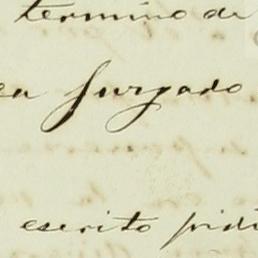 termino de
en Jurgado
escrito pidi